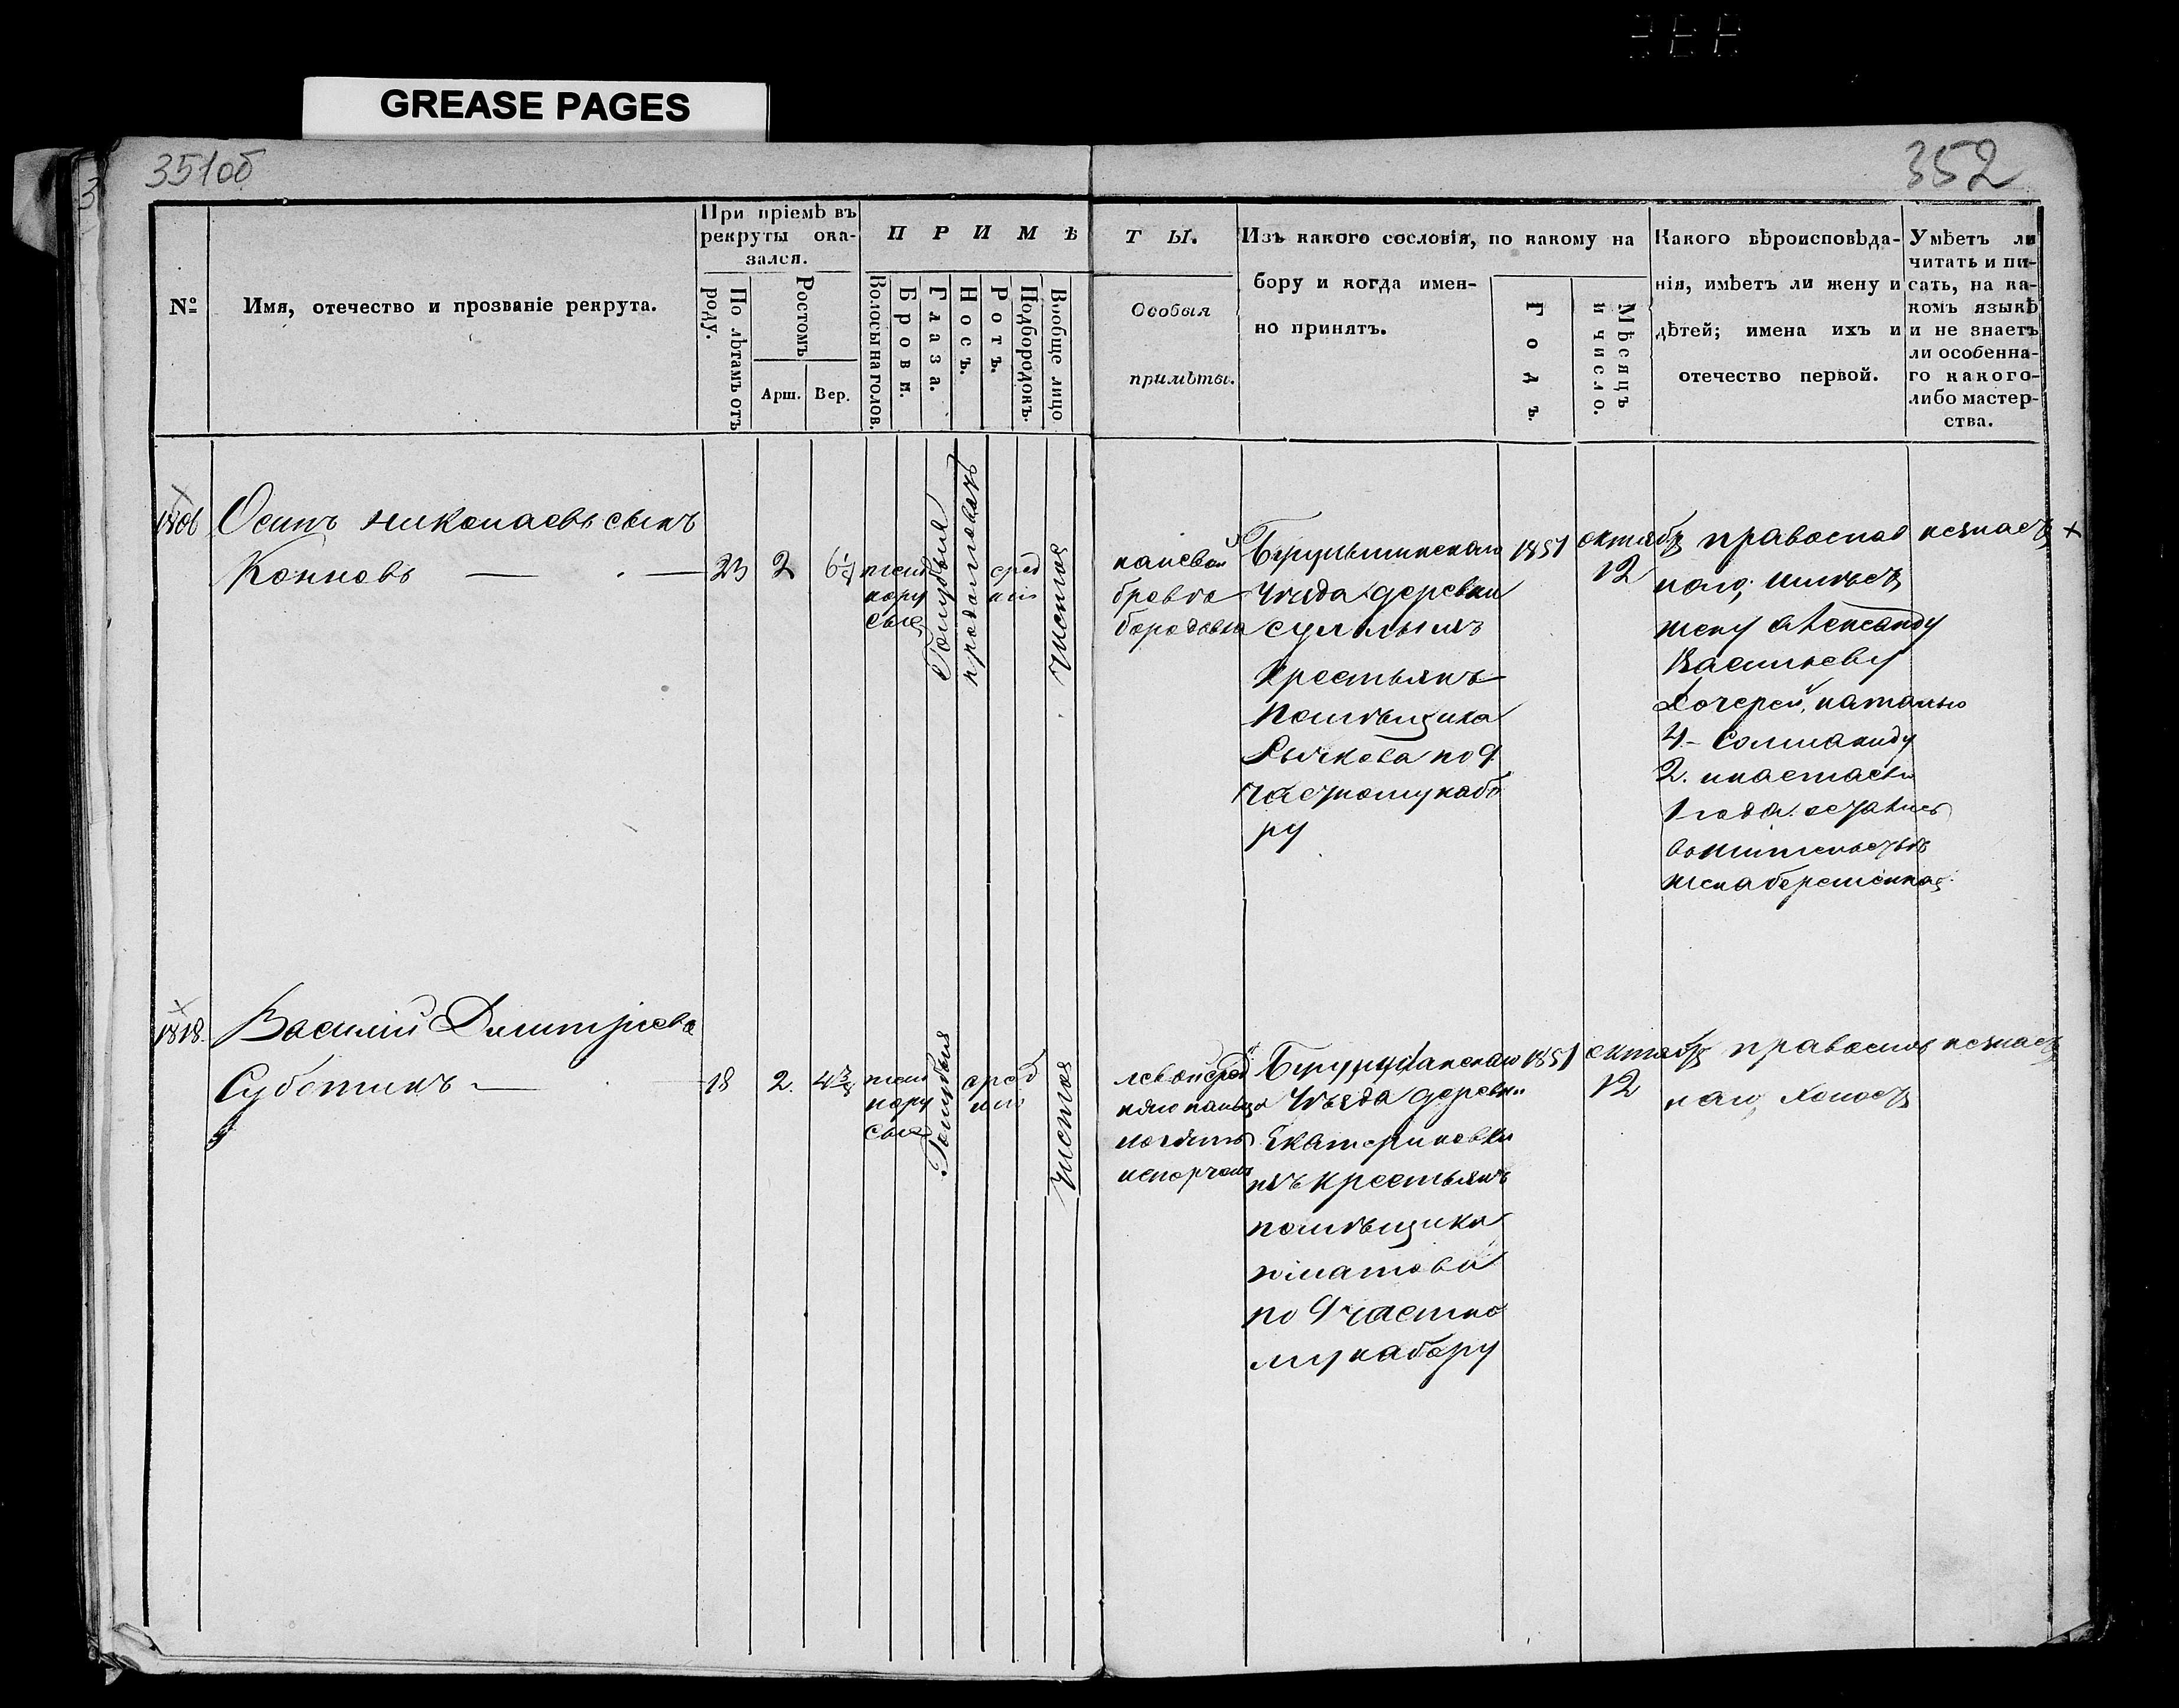 GREASE PAGES
351об
352
№
Имя, отечество и прозваніе рекрута.
При пріемѣ въ
рекруты ока-
зался.
По лѣтамъ отъ
роду.
Ростомъ
Арш.
Вер.
П Р И М Ѣ
Волосы на голов.
Брови.
Глаза.
Носъ.
Ротъ.
Подбородокъ.
Вообще лицо
Т Ы.
Особыя
примѣты.
Изъ какого сословія, по какому на
бору и когда имен-
но принятъ.
Годъ.
Мѣсяцъ
и число.
Какого вѣроисповѣда-
нія, имѣетъ ли жену и
дѣтей; имена ихъ и
отечество первой.
Умѣетъ ли
читать и пи-
сать, на ка-
комъ языкѣ
и не знаетъ
ли особенна-
го какого-
либо мастер-
ства.
Осипъ николаевъ сынъ
Конновъ
23
2
темн
нору
сые
Голубыя
продолговатъ
сред
ніи
Чистое
на левой
брове
бородавка
уѣзда деревни
крестьянъ
помѣщика
Рычкова по 9
частному набо
ру
1851
октябр
12
православ
наго, имѣетъ
жену Александу
Васильеву
дочерей, наталью
4 - Соломаниду
2. инастасью
1 года. остались
жена беременная.
незнаетъ
х
1818.
Василій Дмитріевъ
Суботинъ
18
2.
4 3/4
темн
нору
сые
Голубыя
сред
нія
Чистое
левой сред
няго пальца
ноготь
испорченъ
уѣзда деревни
Екатериновки
изъ крестьянъ
помѣщика
по 9 частно
му набору
1851
октябр
12
православ
наго, холостъ
незнаетъ